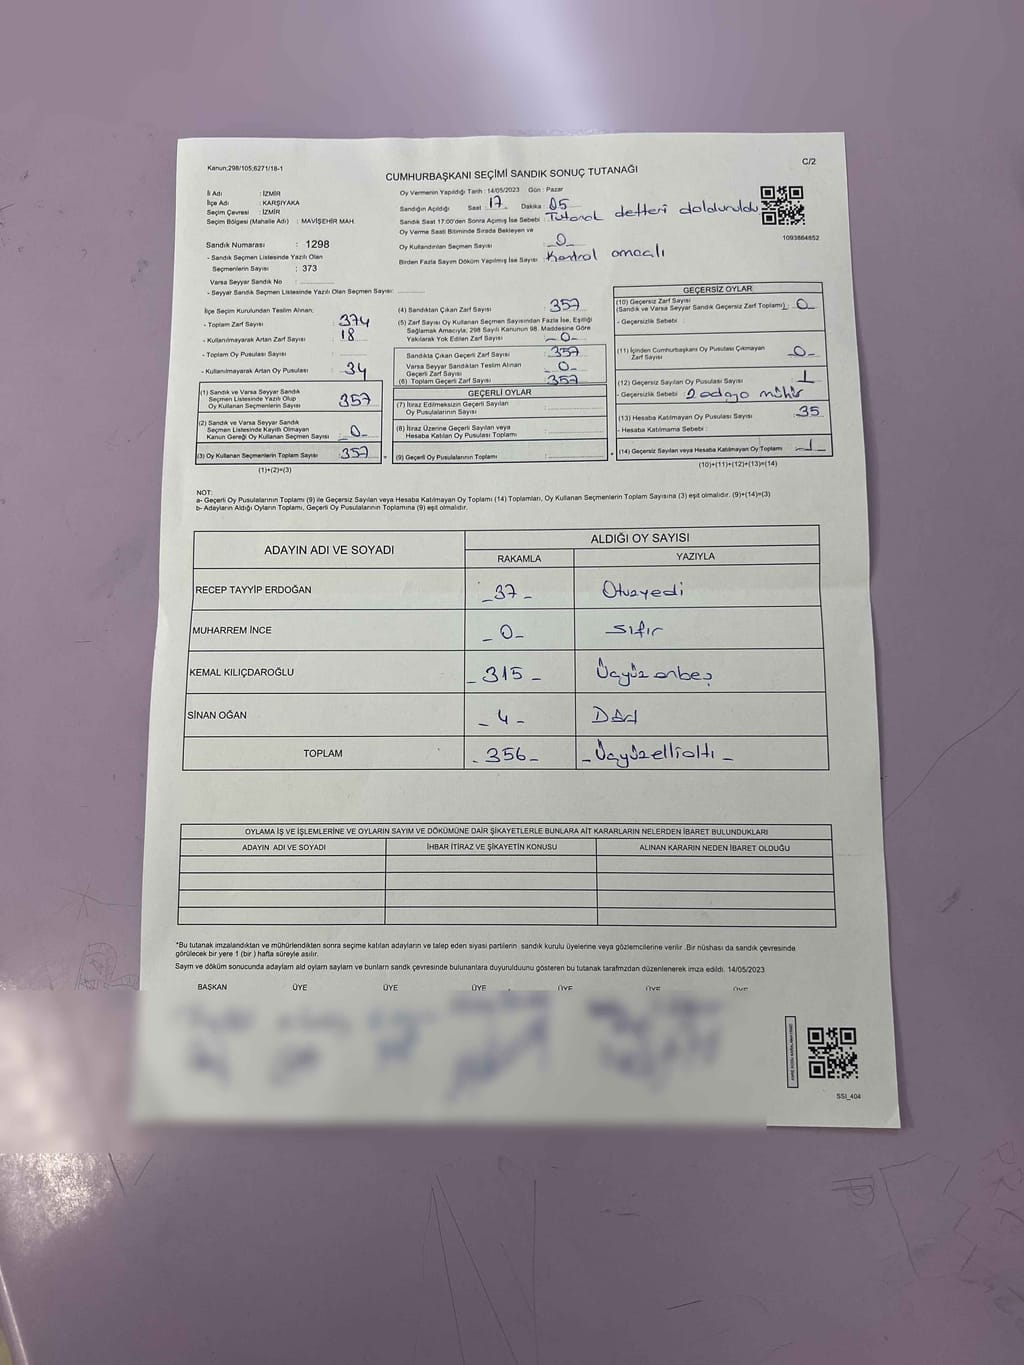 Kanun;298/105;6271/18-1
C/2
CUMHURBAŞKANI SEÇİMİ SANDIK SONUÇ TUTANAĞI
İl Adı : İZMİR
İlçe Adı : KARŞIYAKA
Seçim Çevresi : İZMİR
Seçim Bölgesi (Mahalle Adı) : MAVİŞEHİR MAH.
Sandık Numarası : 1298
- Sandık Seçmen Listesinde Yazılı Olan
Seçmenlerin Sayısı : 373
Varsa Seyyar Sandık No :
- Seyyar Sandık Seçmen Listesinde Yazılı Olan Seçmen Sayısı:
Oy Vermenin Yapıldığı Tarih : 14/05/2023 Gün : Pazar
Sandığın Açıldığı Saat 17 Dakika : 05
Sandık Saat 17:00'den Sonra Açımış İse Sebebi : Tutanak defteri dolduruldu
Oy Verme Saati Bitiminde Sırada Bekleyen ve
Oy Kullandırılan Seçmen Sayısı : _0_
Birden Fazla Sayım Döküm Yapılmış İse Sayısı : Kontrol amaçlı
1093864852
İlçe Seçim Kurulundan Teslim Alınan;
- Toplam Zarf Sayısı : 374
- Kullanılmayarak Artan Zarf Sayısı : 18
- Toplam Oy Pusulası Sayısı :
- Kullanılmayarak Artan Oy Pusulası : 34
(1) Sandık ve Varsa Seyyar Sandık
Seçmen Listesinde Yazılı Olup
Oy Kullanan Seçmenlerin Sayısı : 357
(2) Sandık ve Varsa Seyyar Sandık
Seçmen Listesinde Kayıtlı Olmayan
Kanun Gereği Oy Kullanan Seçmen Sayısı : _0_
(3) Oy Kullanan Seçmenlerin Toplam Sayısı : 357
(1)+(2)=(3)
(4) Sandıktan Çıkan Zarf Sayısı : 357
(5) Zarf Sayısı Oy Kullanan Seçmen Sayısından Fazla İse, Eşitliği
Sağlamak Amacıyla; 298 Sayılı Kanunun 98. Maddesine Göre
Yakılarak Yok Edilen Zarf Sayısı : _0_
Sandıkta Çıkan Geçerli Zarf Sayısı : 357
Varsa Seyyar Sandıktan Teslim Alınan
Geçerli Zarf Sayısı : _0_
(6) Toplam Geçerli Zarf Sayısı : 357
GEÇERLİ OYLAR
(7) İtiraz Edilmeksizin Geçerli Sayılan
Oy Pusulalarının Sayısı :
(8) İtiraz Üzerine Geçerli Sayılan veya
Hesaba Katılan Oy Pusulası Toplamı :
(9) Geçerli Oy Pusulalarının Toplamı :
GEÇERSİZ OYLAR
(10) Geçersiz Zarf Sayısı
(Sandık ve Varsa Seyyar Sandık Geçersiz Zarf Toplamı) : _0_
- Geçersizlik Sebebi :
(11) İçinden Cumhurbaşkanı Oy Pusulası Çıkmayan
Zarf Sayısı : _0_
(12) Geçersiz Sayılan Oy Pusulası Sayısı : 1
- Geçersizlik Sebebi : 2 adaya mühür
(13) Hesaba Katılmayan Oy Pusulası Sayısı : 35
- Hesaba Katılmama Sebebi :
(14) Geçersiz Sayılan veya Hesaba Katılmayan Oy Toplamı : _1_
(10)+(11)+(12)+(13)=(14)
NOT:
a- Geçerli Oy Pusulalarının Toplamı (9) ile Geçersiz Sayılan veya Hesaba Katılmayan Oy Toplamı (14) Toplamları, Oy Kullanan Seçmenlerin Toplam Sayısına (3) eşit olmalıdır. (9)+(14)=(3)
b- Adayların Aldığı Oyların Toplamı, Geçerli Oy Pusulalarının Toplamına (9) eşit olmalıdır.
ADAYIN ADI VE SOYADI ALDIĞI OY SAYISI
RAKAMLA YAZIYLA
RECEP TAYYİP ERDOĞAN _37_ Otuzyedi
MUHARREM İNCE _0_ Sıfır
KEMAL KILIÇDAROĞLU _315_ Üçyüz onbeş
SİNAN OĞAN _4_ Dört
TOPLAM _356_ _Üçyüzellialtı_
OYLAMA İŞ VE İŞLEMLERİNE VE OYLARIN SAYIM VE DÖKÜMÜNE DAİR ŞİKAYETLERLE BUNLARA AİT KARARLARIN NELERDEN İBARET BULUNDUKLARI
ADAYIN ADI VE SOYADI İHBAR İTİRAZ VE ŞİKAYETİN KONUSU ALINAN KARARIN NEDEN İBARET OLDUĞU
*Bu tutanak imzalandıktan ve mühürlendikten sonra seçime katılan adayların ve talep eden siyasi partilerin sandık kurulu üyelerine veya gözlemcilerine verilir .Bir nüshası da sandık çevresinde
görülecek bir yere 1 (bir ) hafta süreyle asılır.
Sayım ve döküm sonucunda adaylarm ald oylarn sayların ve bunların sandk çevresinde bulunanlara duyurulduunu gösteren bu tutanak tarafmzdan düzenlenerek imza edildi. 14/05/2023
BAŞKAN ÜYE ÜYE ÜYE ÜYE ÜYE ÜYE
SSI_404